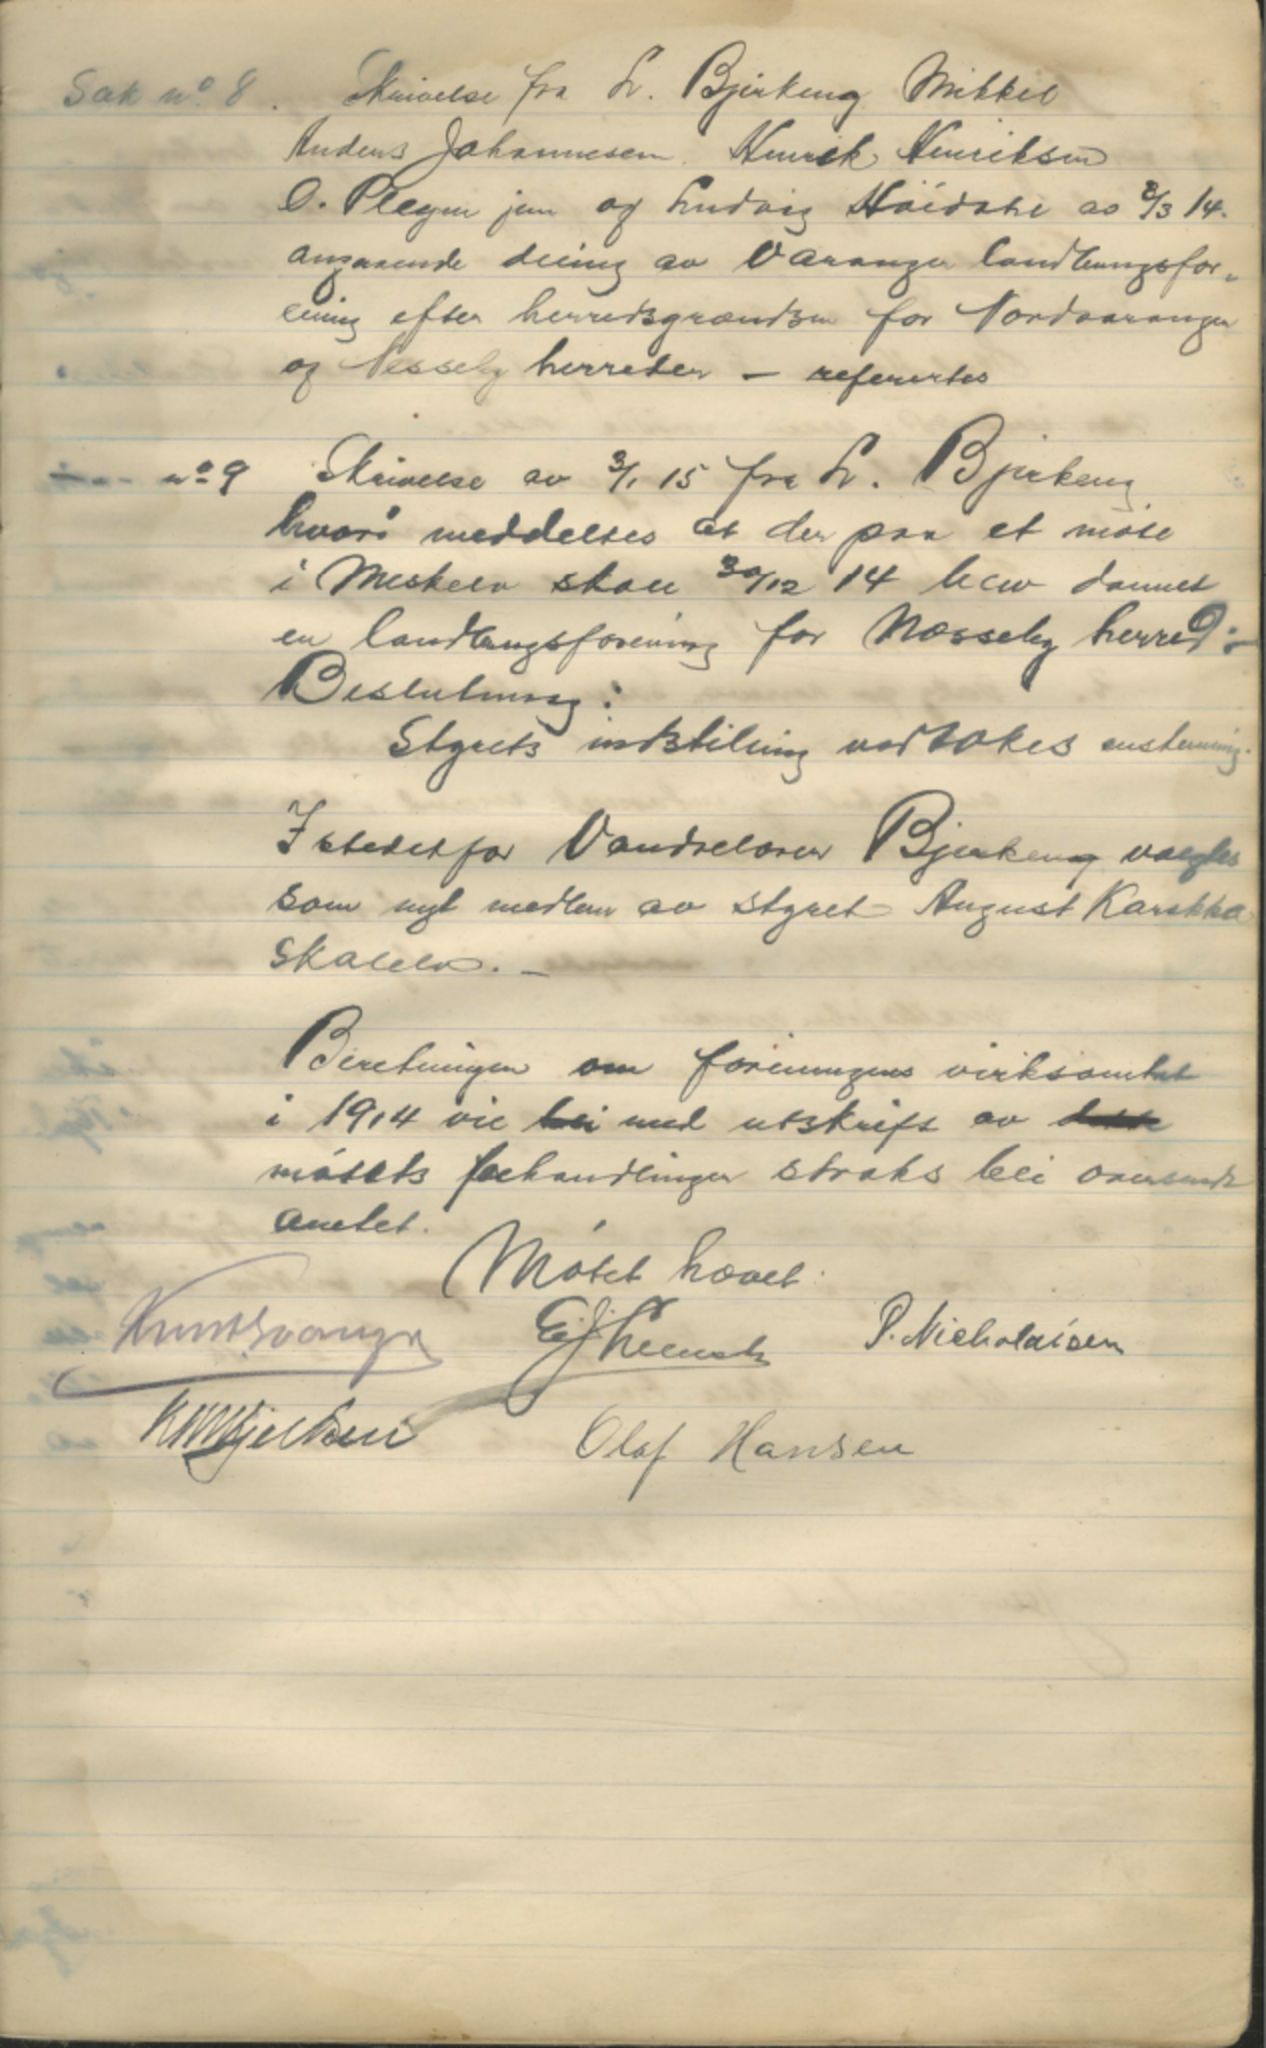 Sak nº 8. Skrivelse fra L. Bjerkeng Mikkel
Anders Johannesen. Henrik Henriksen
O. Pleym jun og Ludvig Höidahl av 8/3 14.
angaaende deling av Varanger landbrugsfor-
ening efter herredsgrændsen for Nordvaranger
og Nesseby herreder — refereertes
— " — nº 9 Skrivelse av 3/1 15 fra L. Bjerkeng
hvori meddeltes at der paa et möte
i Meskelv skole 30/12 14 blev dannet
en landbrugsforening for Næsseby herred:-
Beslutning:
Styrets indstilling vedtokes enstemmig.
Istedetfor Vandrelærer Bjerkeng valgtes
som nyt medlem av styret August Karikka
Skallelv. —
Beretningen om foreningens virksomhet
i 1914 vil bli med utskrift av dette
mötets behandlinger straks bli oversendt
amtet.
Mötet hævet.
P. Nicholaisen
Olaf Hansen